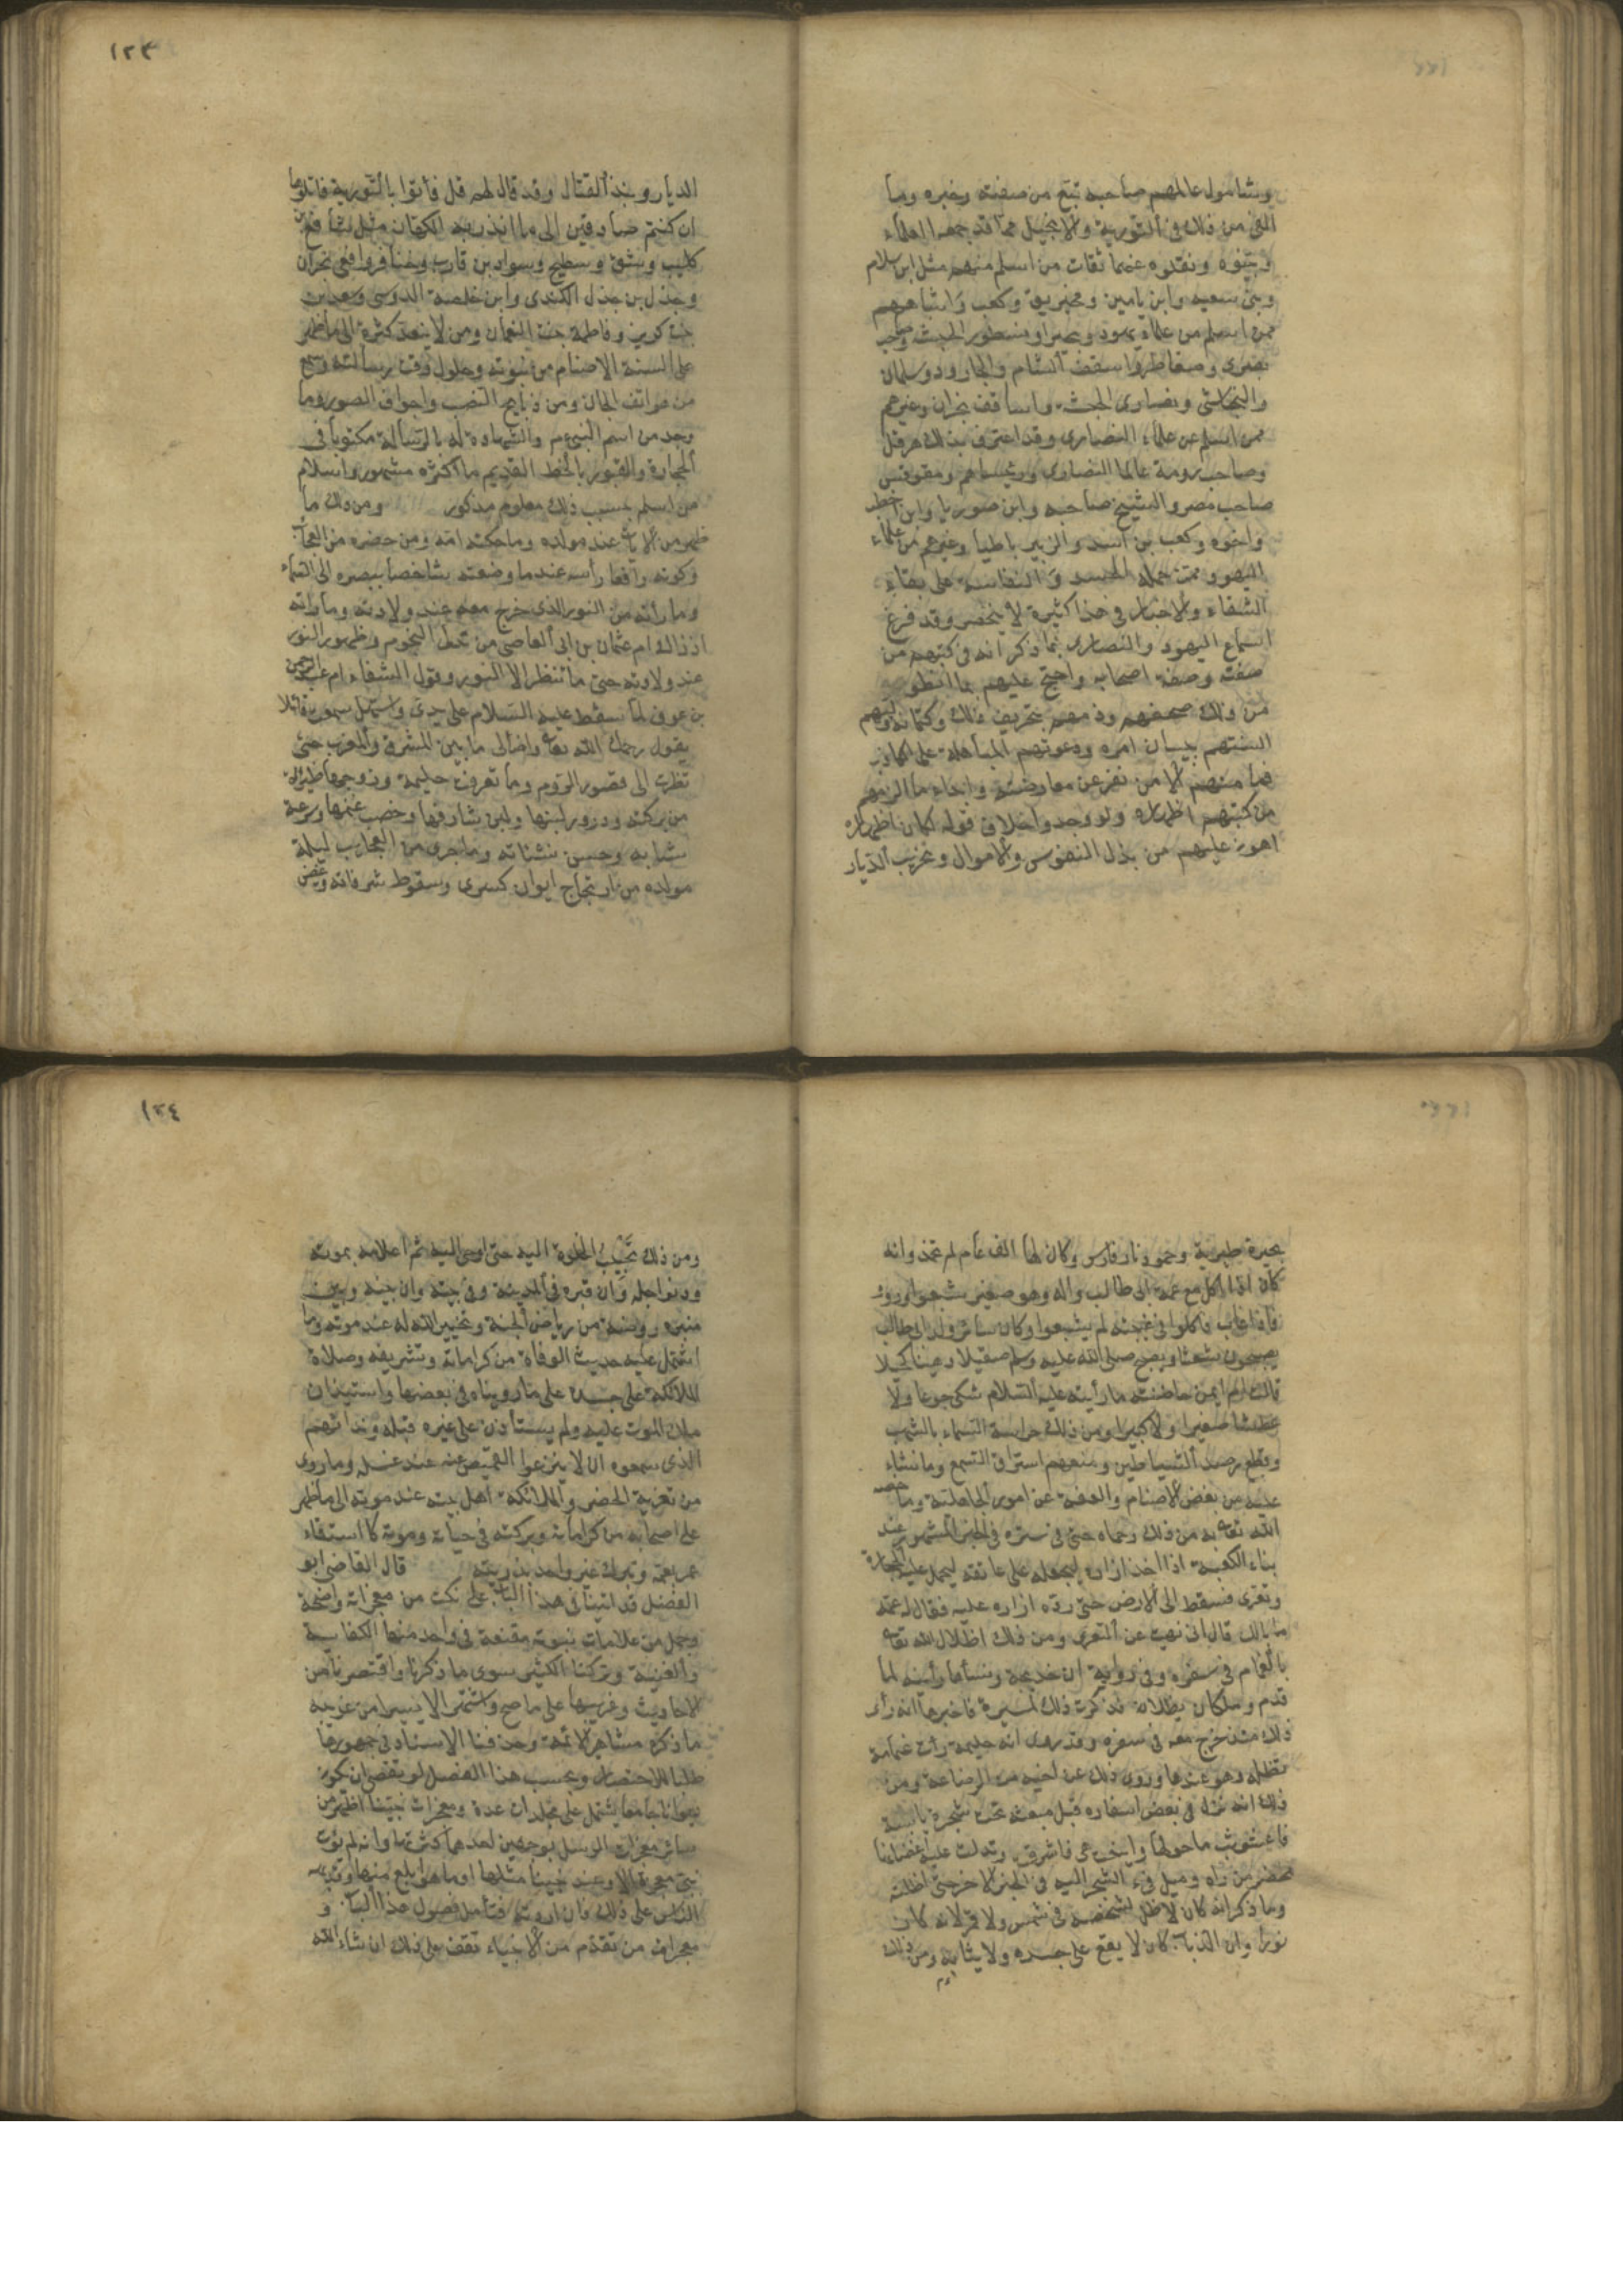 وشامول عالمهم صاحب تبع من صفته وخبره وما
الفى من ذلك فى التورية والانجيل مما قد جمعه العلماء
وبينوه ونقله عنهما ثقات من اسلم منهم مثل ابن سلام
وبنى سعيه وابن يامين ومخيريق وكعب واشباههم
ممن اسلم من علماء يهود وبحيرا ونسطور الحبشة وصاحب
بصرى وضغاطر واسقف الشام والجارود وسلمان
والنجاشى ونصارى الحبشة واساقف نجران وغيرهم
ممن اسلم من علماء النصارى وقد اعترف بذلك هرقل
وصاحب رومة عالما النصارى ورئيساهم ومقوقس
صاحب مصر والشيخ صاحبه وابن صوريا وابن اخطب
واخوه وكعب بن اسد والزبير باطيا وغيرهم من علماء
اليهود ممن حمله الحسد والنفاسة على بقاء
الشقاء والاخبار فى هذا كثيرة لا تنحصر وقد قرع
اسماع اليهود والنصارى بما ذكر انه فى كتبهم من
صفته وصفة اصحابه واحتج عليهم بما انطوت
من ذلك صحفهم وذمهم بتحريف ذلك وكتمانه وليهم
السنتهم ببيان امره ودعوتهم المباهلة على الكاذب
فما منهم الا من نفر عن معارضته وابداء ما الزمهم
من كتبهم اظهاره ولو وجدوا خلاف قوله لكان اظهاره
اهون عليهم من بذل النفوس والاموال وتخريب الديار
١٢٣
الديار ونبذ القتال وقد قال لهم قل فأتوا بالتورية فاتلوها
ان كنتم صادقين الى ما انذر به الكهان مثل شافع بن
كليب وشق وسطيح وسواد بن قارب وخنافر وافعى نجران
وجذل بن جذل الكندى وابن خلصة الدوسى وسعد بن
بنت كريز وفاطمة بنت النعمان ومن لا ينعد كثرة الى ما ظهر
على السنة الاصنام من نبوته وحلول وقت رسالته وسمع
من هواتف الجان ومن ذبايح النصب واجواف الصور وما
وجد من اسم النبى عم والشهادة له بالرسالة مكتوبا فى
الحجارة والقبور بالخط القديم ما اكثره مشهور واسلام
من اسلم بسبب ذلك معلوم مذكور ومن ذلك ما
ظهر من الايات عند مولده وما حكته امه ومن حضره من العجائب
وكونه رافعا رأسه عندما وضعته شاخصا ببصره الى السماء
وما رأته من النور الذى خرج معه عند ولادته وما رأته
اذ ذاك ام عثمان بن ابى العاصى من تدلى النجوم وظهور النور
عند ولادته حتى ما تنظر الا النور وقول الشفاء ام عبد الرحمن
بن عوف لما سقط عليه السلام على يدى واستهل سمعت قائلا
يقول رحمك الله تعا واضا لى ما بين المشرق والمغرب حتى
نظرت الى قصور الروم وما تعرفت حليمة وزوجها ظئراه
من بركته ودرور لبنها ولبن شارفها وخصب غنمها وسرعة
شبابه وحسن نشئاته وما جرى من العجايب ليلة
مولده من ارتجاج ايوان كسرى وسقوط شرفاته وغيض
بحيرة طبرية وخمود نار فارس وكان لها الف عام لم تخمد وانه
كان اذا اكل مع عمه ابى طالب واله وهو صغير شبعوا ورووا
فاذا غاب فاكلوا فى غيبته لم يشبعوا وكان سائر ولد ابى طالب
يصبحون شعثا ويصبح صلى الله عليه وسلم صقيلا دهينا كحيلا
قالت ام ايمن حاضنته ما رأيته عليه السلام شكى جوعا ولا
عطشا صغيرا ولا كبيرا ومن ذلك حراسة السماء بالشهب
وقطع رصد الشياطين ومنعهم استراق السمع وما نشاء
عليه من بغض الاصنام والعفة عن امور الجاهلية وما خصه
الله تعا به من ذلك وحماه حتى فى ستره فى الخبر المشهور عند
بناء الكعبة اذ اخذ ازاره ليجعله على عاتقه ليحمل عليه الحجارة
وتعرى فسقط الى الارض حتى رده ازاره عليه فقال له عمه
ما بالك قال انى نهيت عن التعرى ومن ذلك اظلال الله تعا
بالغمام فى سفره وفى رواية ان خديجة ونساءها رأينه لما
قدم وملكان يظلانه فذكرت ذلك لميسرة فاخبرها انه رأى
ذلك منذ خرج معه فى سفره وقد روى ان حليمة رأت غمامة
تظله وهو عندها وروى ذلك عن اخيه من الرضاعة ومن
ذلك انه نزل فى بعض اسفاره قبل مبعثه تحت شجرة يابسة
فاعشوشب ما حولها واينعت هى فاشرقت وتدلت عليه اغصانها
بمحضر من رآه وميل فىء الشجر اليه فى الخبر الاخر حتى اظلته
وما ذكر انه كان لا ظل لشخصه فى شمس ولا قمر لانه كان
نورا وان الذباب كان لا يقع على جسده ولا ثيابه ومن ذلك
١٢٤
ومن ذلك تحبيب الخلوة اليه حتى اوحى اليه ثم اعلامه بموته
ودنو اجله وان قبره فى المدينة وفى بيته وان بيته وبين
منبره روضة من رياض الجنة وتخيير الله له عند موته وما
اشتمل عليه حديث الوفاة من كراماته وتشريفه وصلاة
الملائكة على جسده على ما رويناه فى بعضها واستيذان
ملك الموت عليه ولم يستأذن على غيره قبله وندائهم
الذى سمعوه ان لا ينزعوا القميص عنه عند غسله وما روى
من تعزية الخضر والملائكة اهل بيته عند موته الى ما ظهر
على اصحابه من كراماته وبركته فى حياته وموته كاستسقاء
عمر بعمه وتبرك غير واحد بذريته قال القاضى ابو
الفضل قد اتينا فى هذا الباب على نكت من معجزاته واضحة
وجمل من علامات نبوته مقنعة فى واحد منها الكفاية
والغنية وتركنا الكثير سوى ما ذكرنا واقتصرنا من
الاحاديث وغريبها على ما صح واشتهر الا يسيرا من غريبه
ما ذكره مشاهير الائمة وحذفنا الاسناد فى جمهورها
طلبا للاختصار وبحسب هذا الفصل لو تقصى ان يكون
ديوانا جامعا يشتمل على مجلدات عدة ومعجزات نبينا اظهر من
سائر معجزات الرسل بوجهين احدهما كثرتها وانه لم يؤت
نبى معجزة الا وعند نبينا مثلها او ما هو ابلغ منها وقد نبه
الناس على ذلك فان اردته فتأمل فصول هذا الباب و
معجزات من تقدم من الانبياء تقف على ذلك ان شاء الله